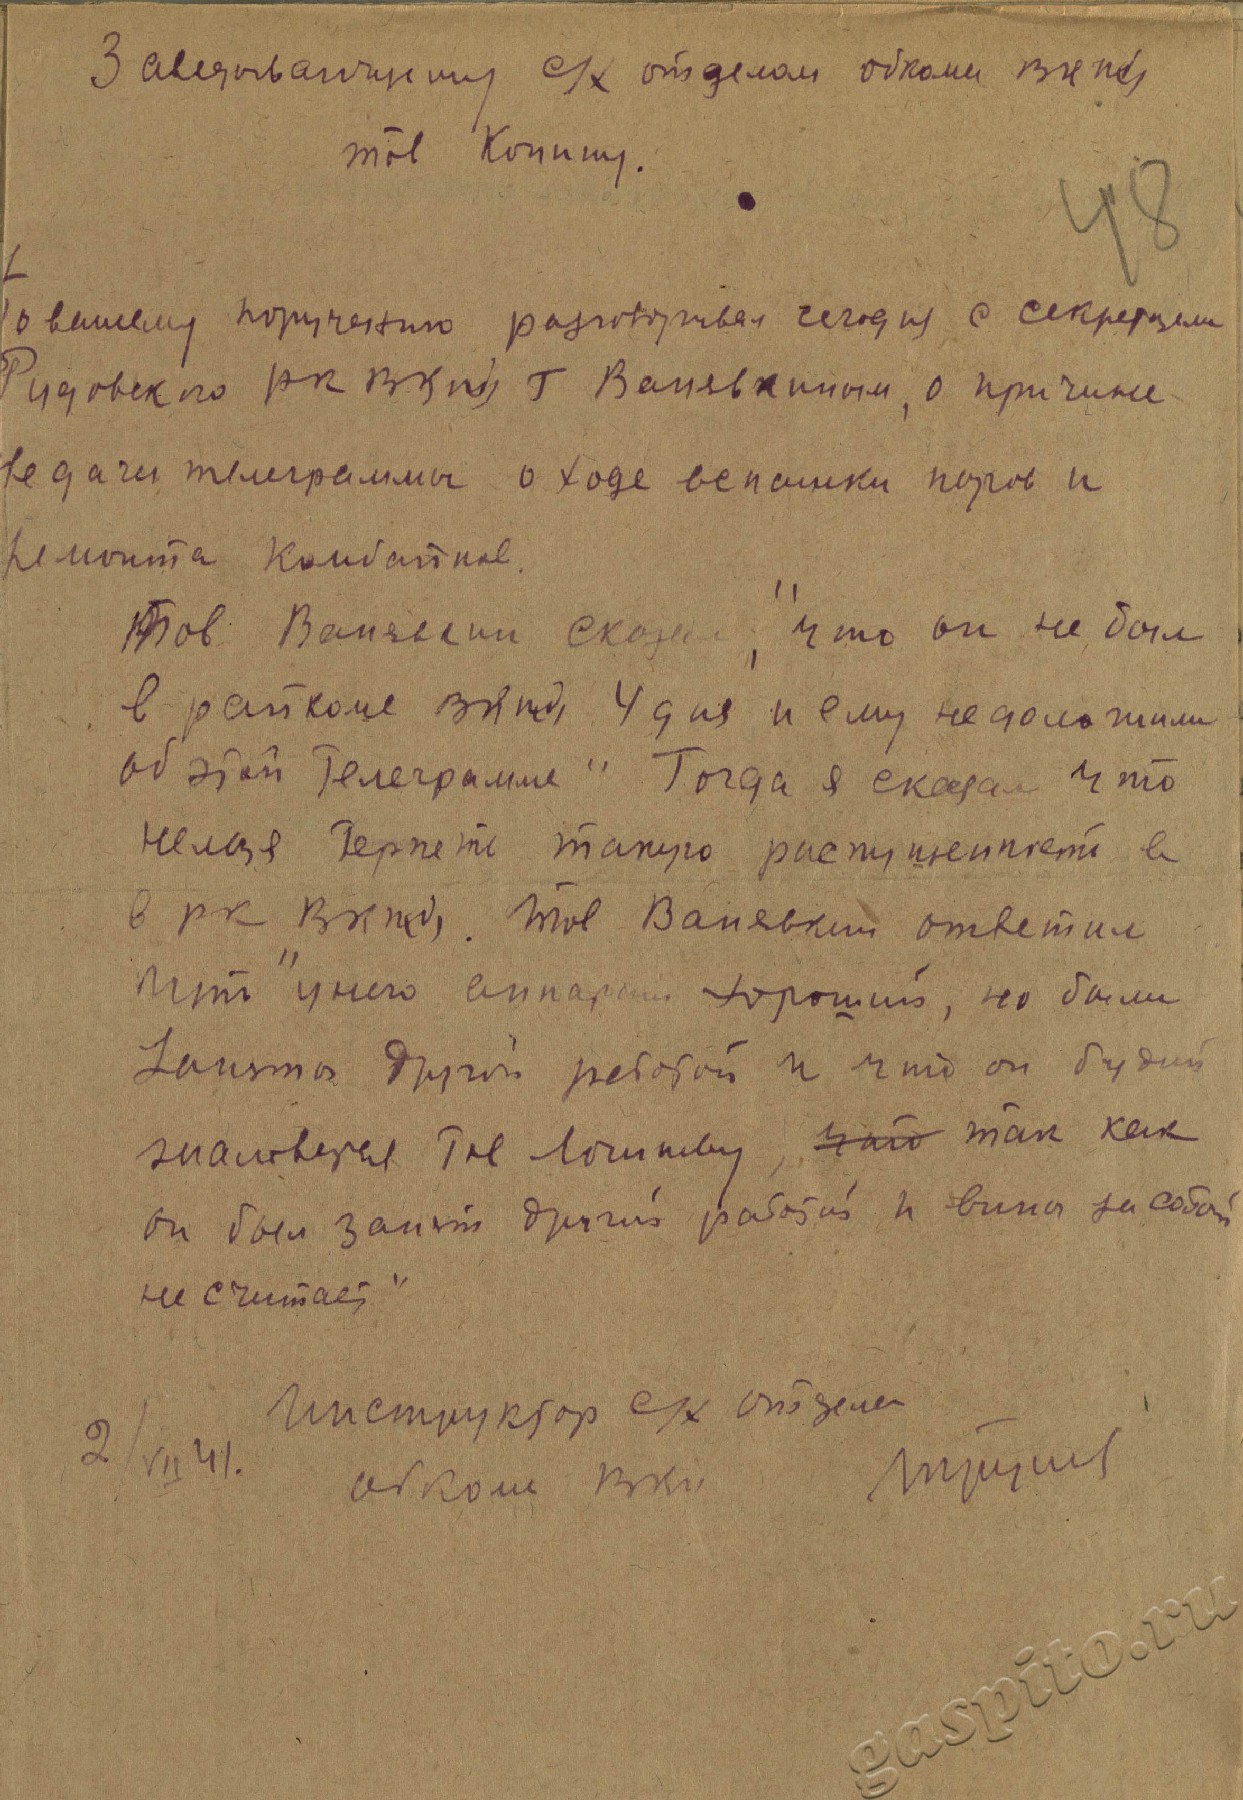 Заведывающему с/х отделом обкома ВКП(б)
тов Копину.
48
По вашему поручению разговаривал сегодня с секретарем
РК ВКП(б) т Ванявкиным, о причине
не дачи телеграммы о ходе вспашки паров и
ремонта комбайнов.
Тов Ванявкин сказал, "что он не был
в райкоме ВКП(б) 4 дня и ему не доложили
об этой телеграмме" Тогда я сказал что
нельзя терпеть такую распущенность в
в РК ВКП(б). Тов Ванявкин ответил
что "у него аппарат хороший, но были
заняты другой работой и что он будит
жаловатся тов Логинову, что так как
он был занят другой работой и вины за собой
не считает"
Инструктор с/х отдела
2/VII 41.
обкома ВКП
gaspito.ru